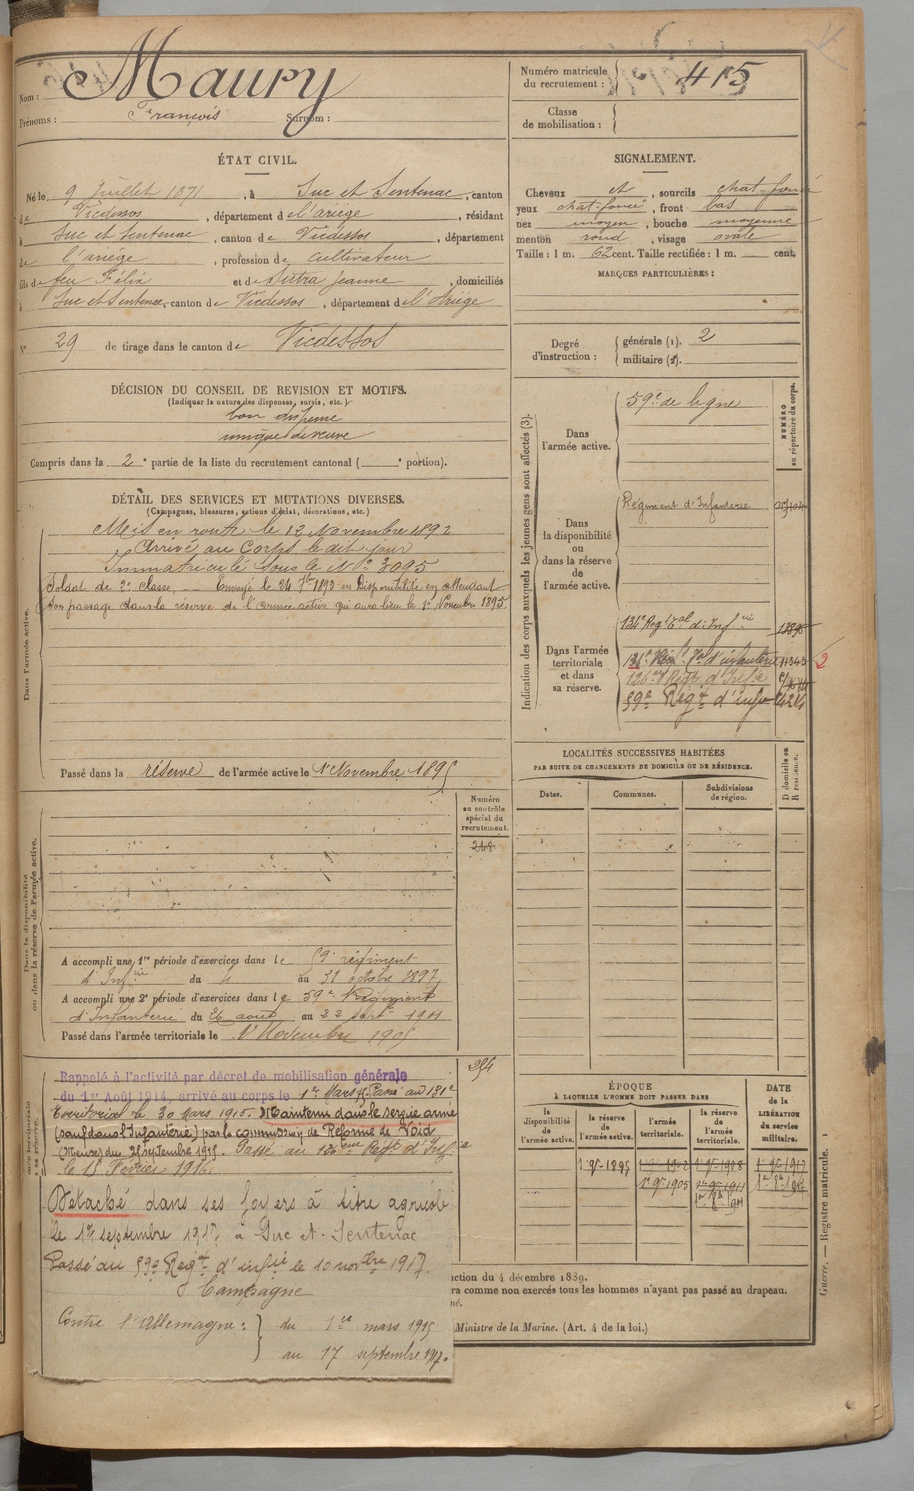 Nom : Maury
Prénoms : François Surnom :
Numéro matricule
du recrutement : 415
Classe
de mobilisation :
ÉTAT CIVIL.
Né le 9 Juillet 1871, à Suc et Sentenac, canton
de Vicdessos, département de l'ariège, résidant
à Suc et Sentenac, canton de Vicdessos, département
de l'ariège, profession de cultivateur
fils de feu Félix et de Sutra Jeanne, domiciliés
à Suc et Sentenac, canton de Vicdessos, département de l'Ariège
N° 29 de tirage dans le canton de Vicdessos
SIGNALEMENT.
Cheveux et, sourcils chat-foncé
yeux chat-foncé, front bas
nez moyen, bouche moyenne
menton rond, visage ovale
Taille : 1 m. 62 cent. Taille rectifiée : 1 m. cent.
MARQUES PARTICULIÈRES :
Degré
d'instruction :
générale (1). 2
militaire (1).
DÉCISION DU CONSEIL DE REVISION ET MOTIFS.
(Indiquer la nature des dispenses, sursis, etc.)
bon dispense
unique de veuve
Compris dans la 2e partie de la liste du recrutement cantonal ( e portion).
DÉTAIL DES SERVICES ET MUTATIONS DIVERSES.
(Campagnes, blessures, actions d'éclat, décorations, etc.)
Dans l'armée active.
Mis en route le 12 Novembre 1892
Arrivé au Corps le dit jour
Immatriculé sous le N° 3095
Soldat de 2e classe, — Envoyé le 24 7bre 1893 en Disponibilité en attendant
son passage dans la réserve de l'armée active qui aura lieu le 1er Novembre 1895.
Passé dans la réserve de l'armée active le 1er Novembre 1895
Indication des corps auxquels les jeunes gens sont affectés (3).
NUMÉRO
au répertoire du corps.
Dans
l'armée active.
59e de ligne
Dans
la disponibilité
ou
dans la réserve
de
l'armée active.
Régiment d'Infanterie
Dans l'armée
territoriale
et dans
sa réserve.
134e Regt Tal d'Infrie
131e Régt Tal d'infanterie 11343 2
126e Régt d'Infie
59e Régt d'infie
LOCALITÉS SUCCESSIVES HABITÉES
PAR SUITE DE CHANGEMENTS DE DOMICILE OU DE RÉSIDENCE.
D domicile ou
R résidence.
Dates.
Communes.
Subdivisions
de région.
Dans la disponibilité
ou dans la réserve de l'armée active.
Numéro
au contrôle
spécial du
recrutement.
248
A accompli une 1re période d'exercices dans le 59e régiment
d'Infrie du 4 au 31 octobre 1897
A accompli une 2e période d'exercices dans le 59e Régiment
d'Infanterie du 26 août au 22 septbre 1901
Passé dans l'armée territoriale le 1er Novembre 1905
254
Rappelé à l'activité par décret de mobilisation générale
du 1er Août 1914, arrivé au corps le 1er Mars 15. Passé au 131e
Territorial le 30 Mars 1915. Maintenu dans le service armé
(sauf dans l'Infanterie) par la commission de Réforme de Void
(Meuse) du 3 septembre 1915. Passé au 126eme Régt d'Infie
le 15 Février 1916.
Détaché dans ses foyers à titre agricole
le 1er septembre 1917, à Suc et Sentenac
Passé au 59e Régt d'infie le 10 novbre 1917.
Campagne
Contre l'Allemagne : du 1er mars 1915
au 17 septembre 1917.
ÉPOQUE
À LAQUELLE L'HOMME DOIT PASSER DANS
DATE
de la
LIBÉRATION
du service
militaire.
la
disponibilité
de
l'armée active.
la réserve
de
l'armée active.
l'armée
territoriale.
la réserve
de
l'armée
territoriale.
1er 9bre 1895 1er 9bre 1902 1er 9bre 1908 1er 9bre 1917
1er 9bre 1905 1er 9bre 1911
ction du 4 décembre 1889.
ra comme non exercés tous les hommes n'ayant pas passé au drapeau.
né.
Ministre de la Marine. (Art. 4 de la loi.)
Guerre. — Registre matricule. 1